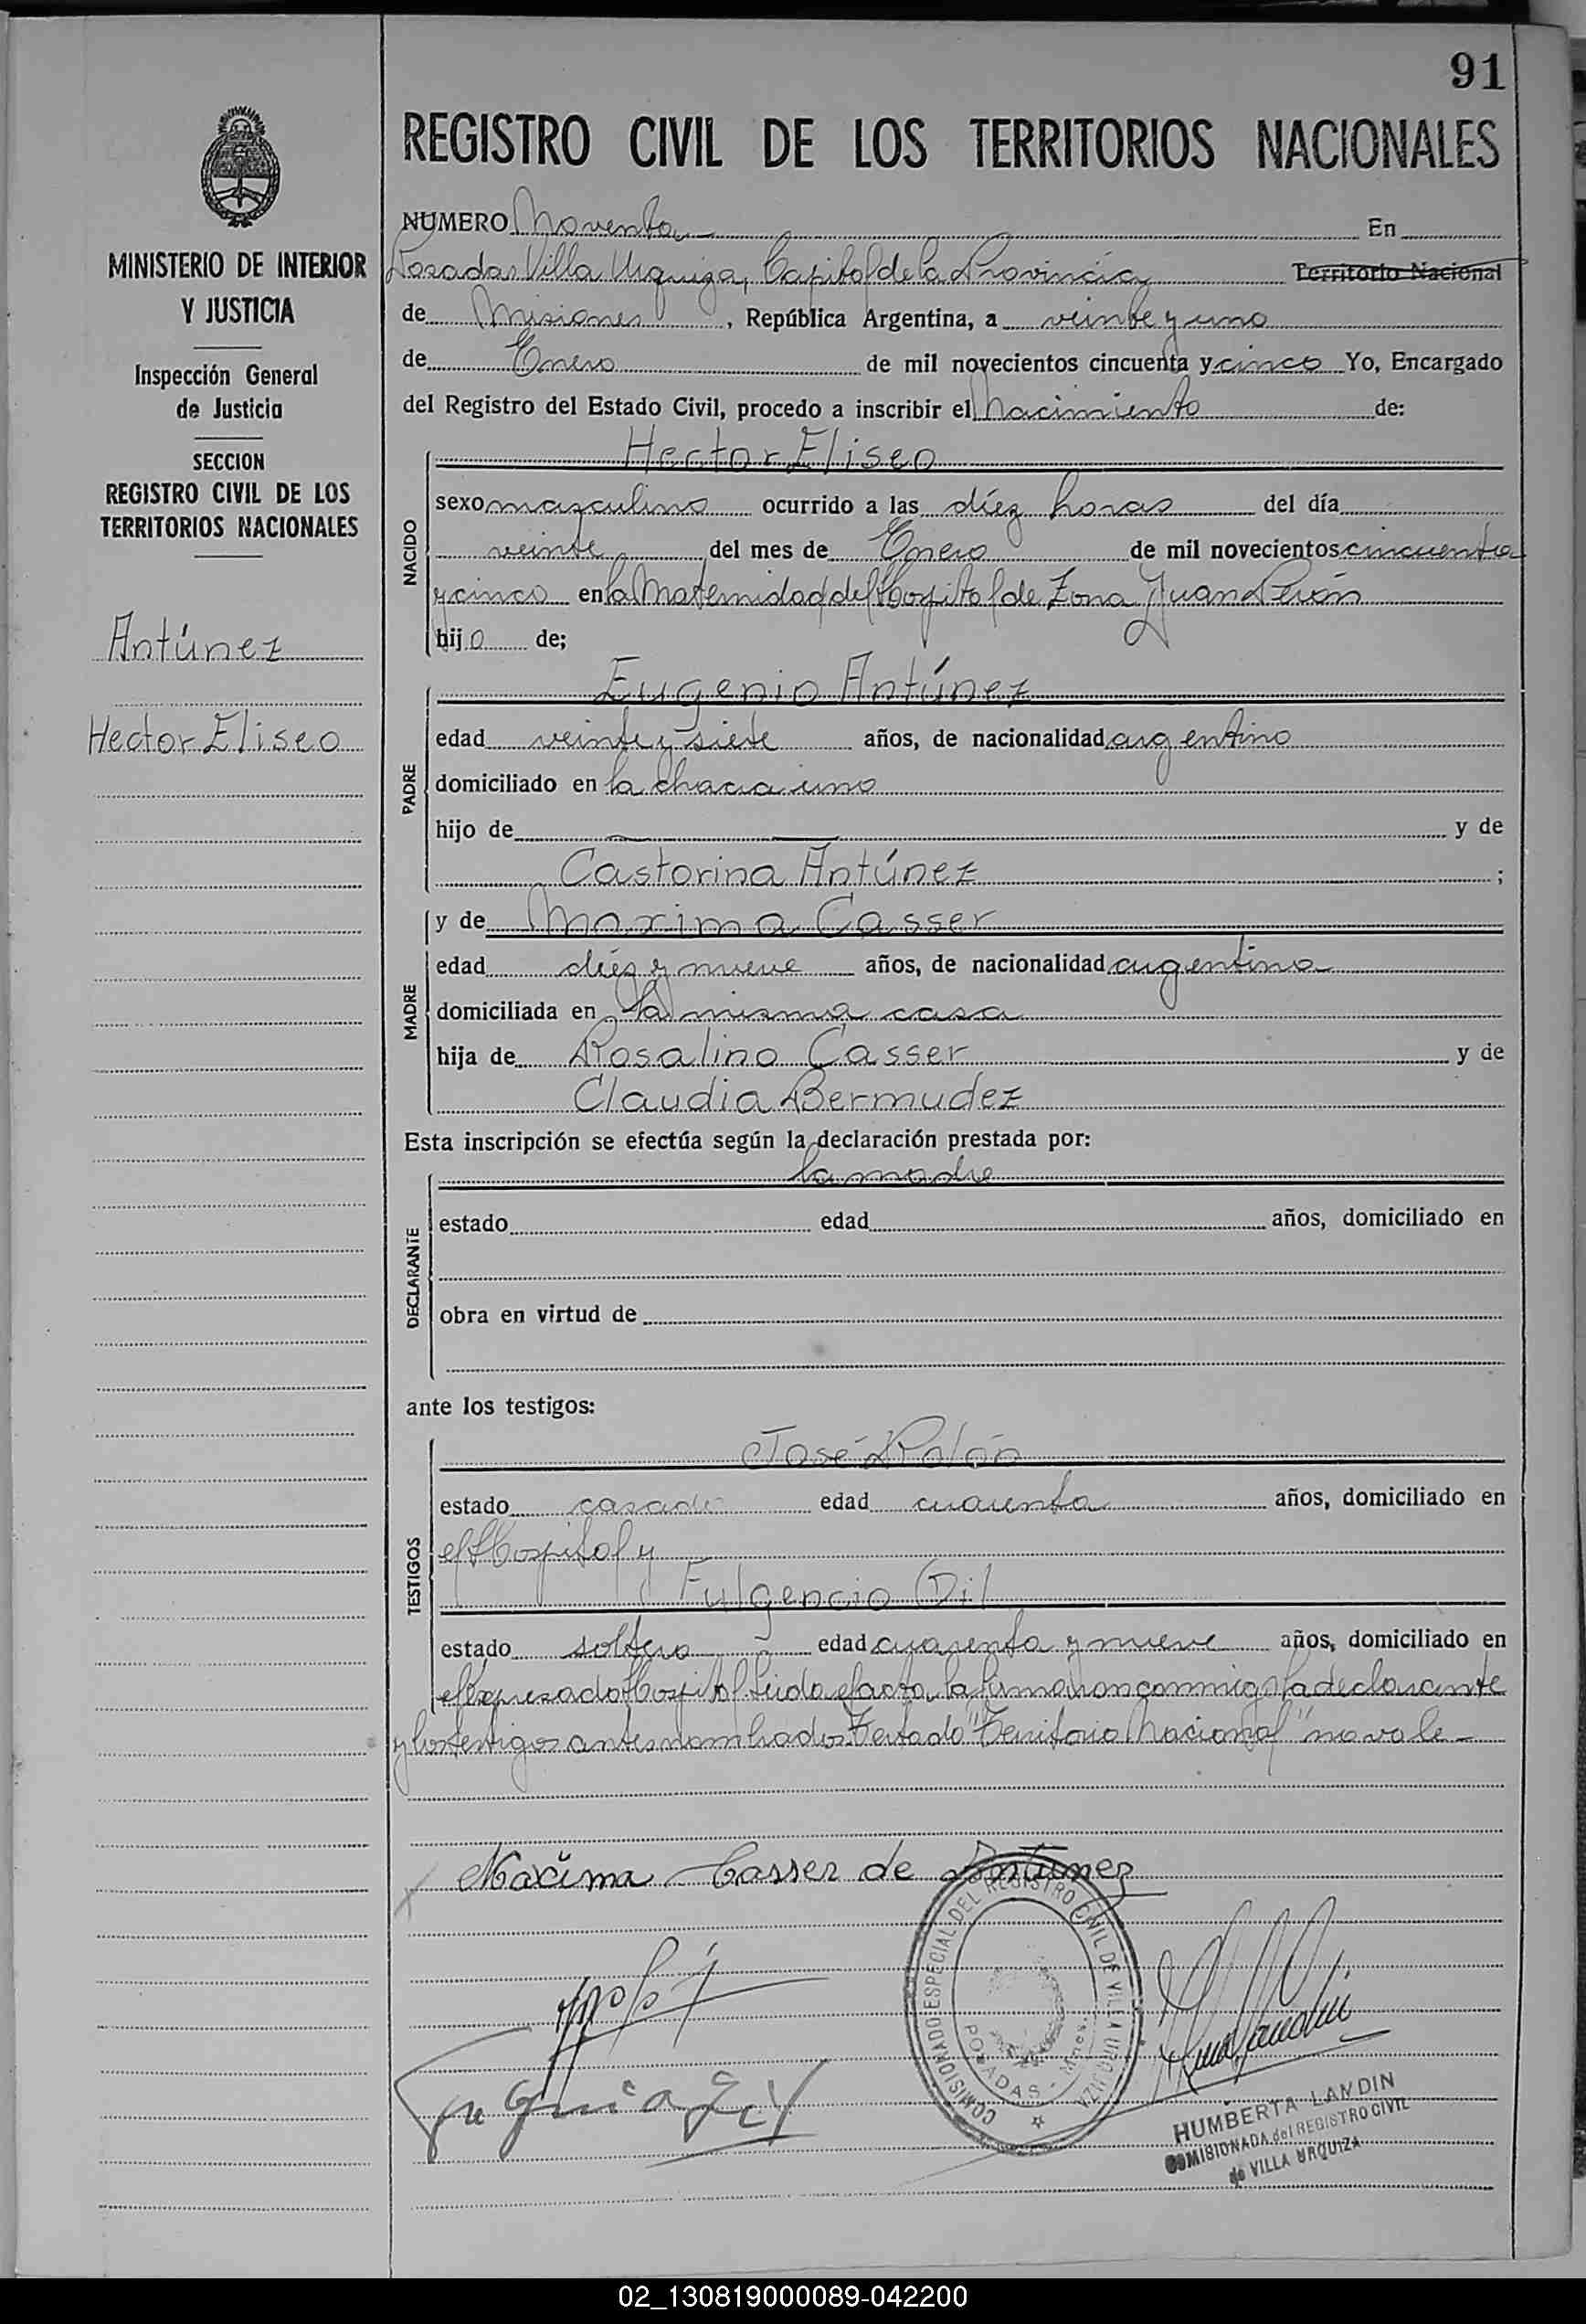 91
REGISTRO CIVIL DE LOS TERRITORIOS NACIONALES
MINISTERIO DE INTERIOR
Y JUSTICIA
Inspección General
de Justicia
SECCION
REGISTRO CIVIL DE LOS
TERRITORIOS NACIONALES
Antúnez
Hector Eliseo
NUMERO Noventa En
Posadas Villa Urquiza, Capital de la Provincia Territorio Nacional
de Misiones, República Argentina, a veinte y uno
de Enero de mil novecientos cincuenta y cinco Yo, Encargado
del Registro del Estado Civil, procedo a inscribir el Nacimiento de:
NACIDO
Hector Eliseo
sexo masculino ocurrido a las diéz horas del día
veinte del mes de Enero de mil novecientos cincuenta
y cinco en la Maternidad del Hospital de Zona Juan Perón
hijo de;
PADRE
Eugenio Antúnez
edad veinte y siete años, de nacionalidad argentino
domiciliado en la chacra uno
hijo de — — y de
Castorina Antúnez ;
MADRE
y de Maxima Casser
edad diéz y nueve años, de nacionalidad argentina
domiciliada en la misma casa
hija de Rosalino Casser y de
Claudia Bermudez
Esta inscripción se efectúa según la declaración prestada por:
DECLARANTE
la madre
estado edad años, domiciliado en
obra en virtud de
ante los testigos:
TESTIGOS
José Rolón
estado casado edad cuarenta años, domiciliado en
el Hospital y
Fulgencio Gil
estado soltero edad cuarenta y nueve años, domiciliado en
el expresado Hospital. Leída el acta, la firmaron conmigo la declarante
y los testigos antes nombrados. Testado "Territorio Nacional" no vale -
Maxima Casser de Antunez
COMISIONADO ESPECIAL DEL REGISTRO CIVIL DE VILLA URQUIZA
POSADAS - Mnes.
HUMBERTA LANDIN
COMISIONADA del REGISTRO CIVIL
de VILLA URQUIZA
02_130819000089-042200